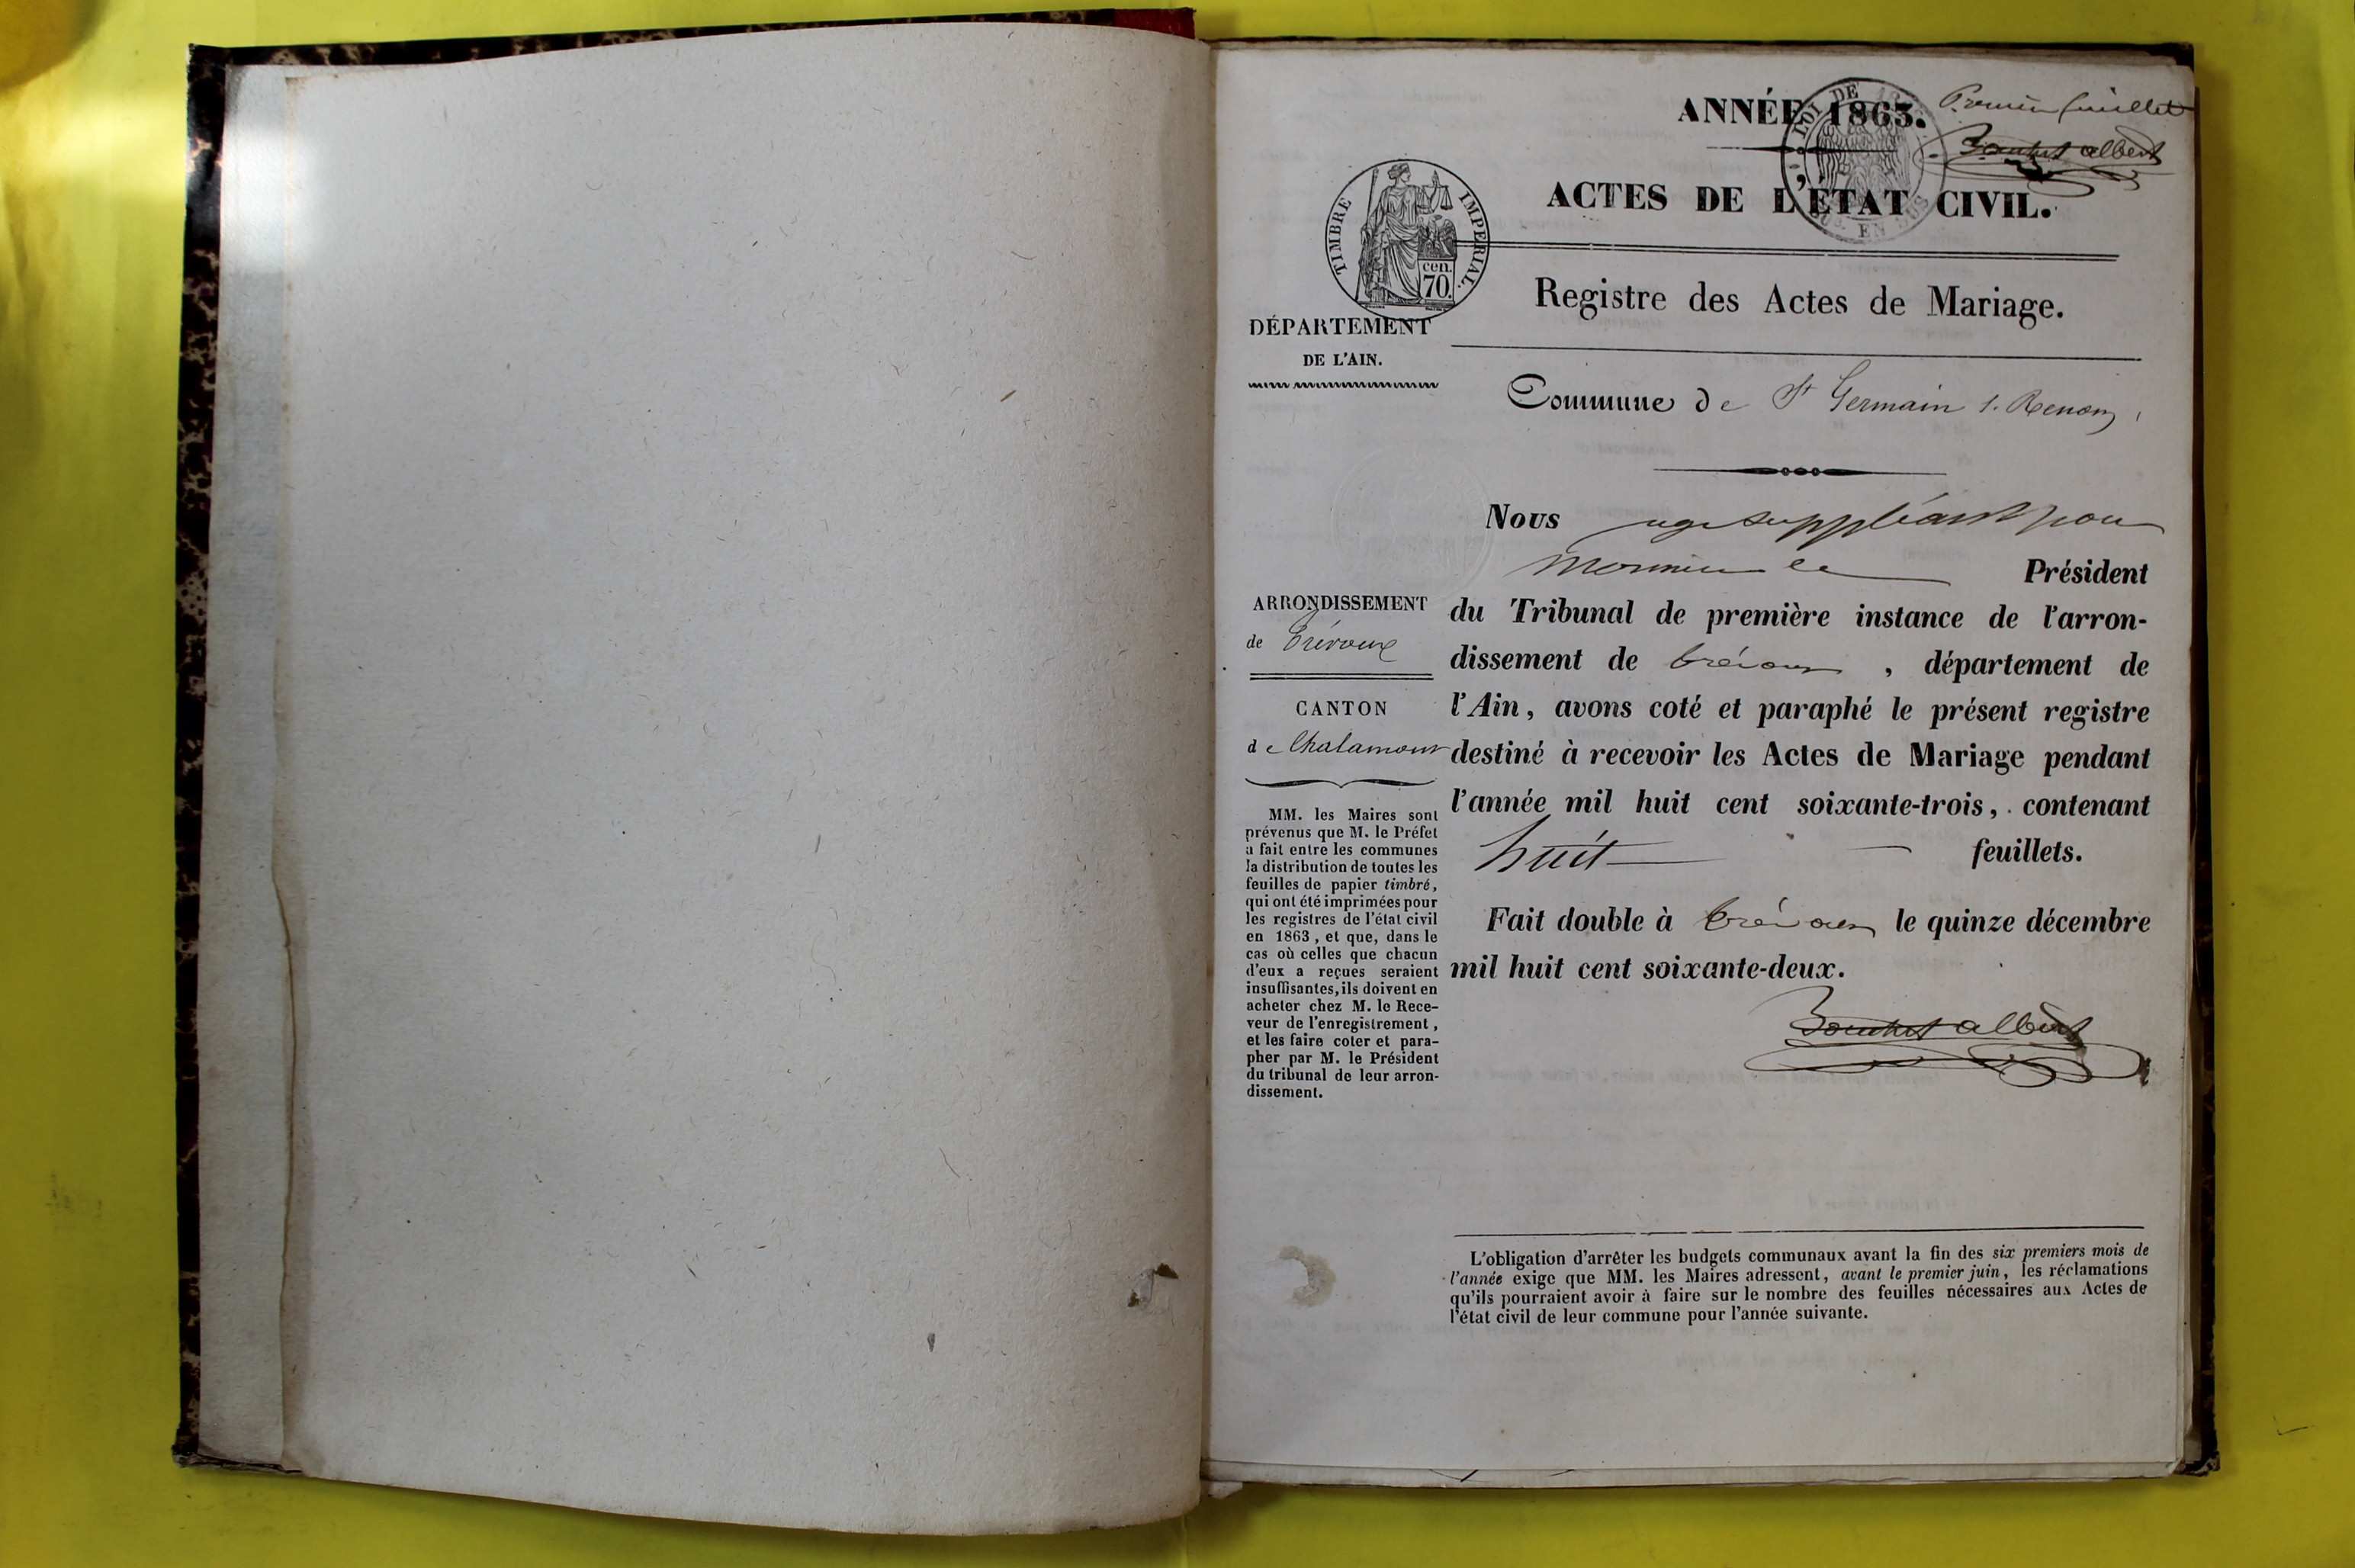 ANNÉE 1863.
Premier feuillet
albert
LOI DE
EN
ACTES DE L'ÉTAT CIVIL.
TIMBRE IMPERIAL.
cen.
70.
Registre des Actes de Mariage.
DÉPARTEMENT
DE L'AIN.
Commune de St Germain s. Renom
Nous juge suppléant pour
Monsieur le Président
du Tribunal de première instance de l'arron-
dissement de trévoux , département de
l'Ain, avons coté et paraphé le présent registre
destiné à recevoir les Actes de Mariage pendant
l'année mil huit cent soixante-trois, contenant
huit feuillets.
Fait double à trévoux le quinze décembre
mil huit cent soixante-deux.
albert
ARRONDISSEMENT
de Trévoux
CANTON
de Chalamont
MM. les Maires sont
prévenus que M. le Préfet
a fait entre les communes
la distribution de toutes les
feuilles de papier timbré,
qui ont été imprimées pour
les registres de l'état civil
en 1863, et que, dans le
cas où celles que chacun
d'eux a reçues seraient
insuffisantes, ils doivent en
acheter chez M. le Rece-
veur de l'enregistrement,
et les faire coter et para-
pher par M. le Président
du tribunal de leur arron-
dissement.
L'obligation d'arrêter les budgets communaux avant la fin des six premiers mois de
l'année exige que MM. les Maires adressent, avant le premier juin, les réclamations
qu'ils pourraient avoir à faire sur le nombre des feuilles nécessaires aux Actes de
l'état civil de leur commune pour l'année suivante.